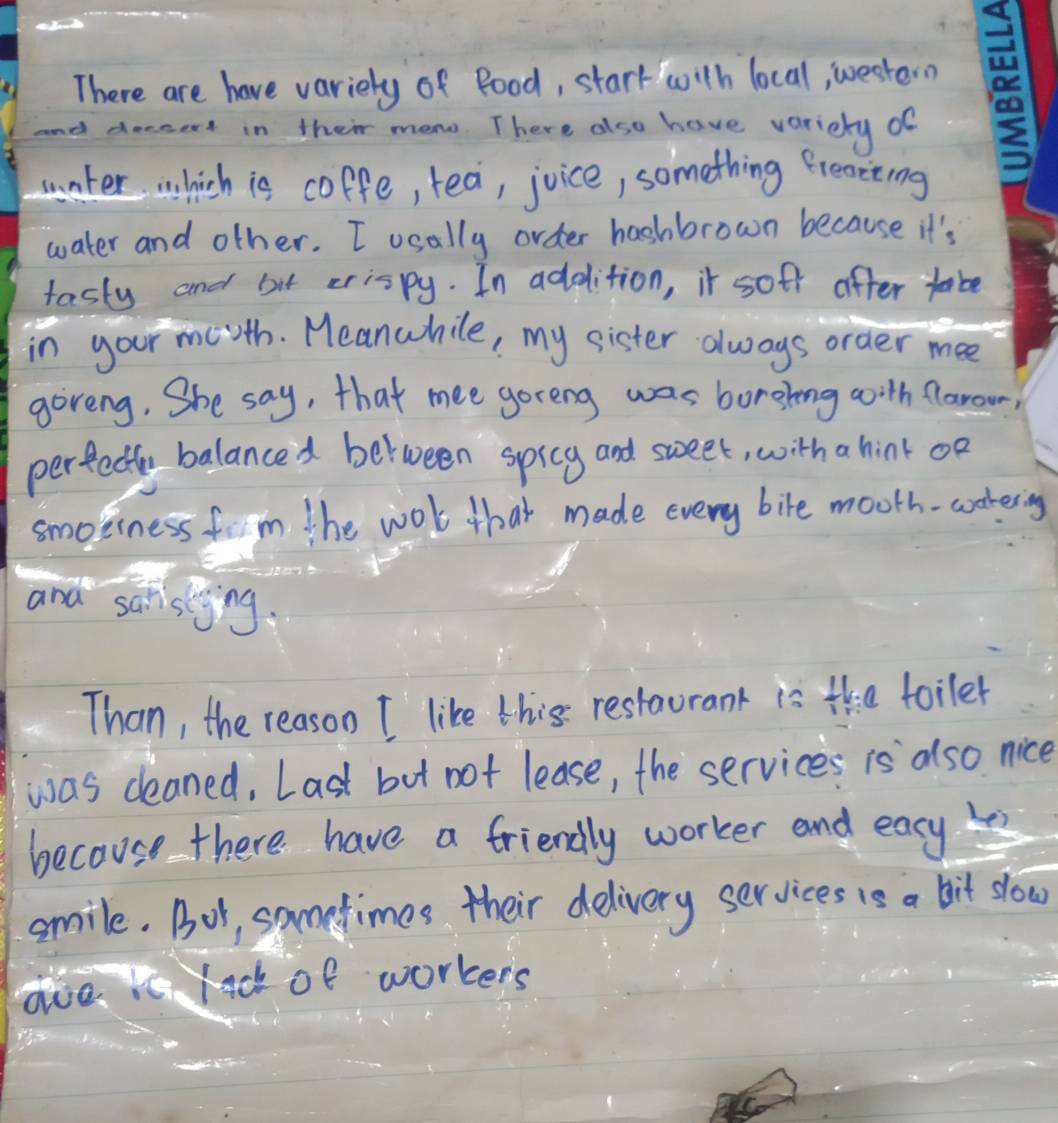 UMBRELLA
There are have variety of food, start with local, western
and dessert in their menu. There also have variety of
water which is coffe, tea, juice, something
water and other. I usally order hashbrown because it's
tasty and bit crispy. In addition, it soft after take
in your mouth. Meanwhile, my sister always order mee
goreng. She say, that mee goreng was bursting with flavour,
perfectly balanced between spicy and sweet, with a hint of
smokiness from the wok that made every bite mouth-watering
and satisfying.
Than, the reason I like this restaurant is the toilet
was cleaned. Last but not lease, the services is also nice
because there have a friendly worker and easy to
smile. But, sometimes their delivery services is a bit slow
due to lack of workers